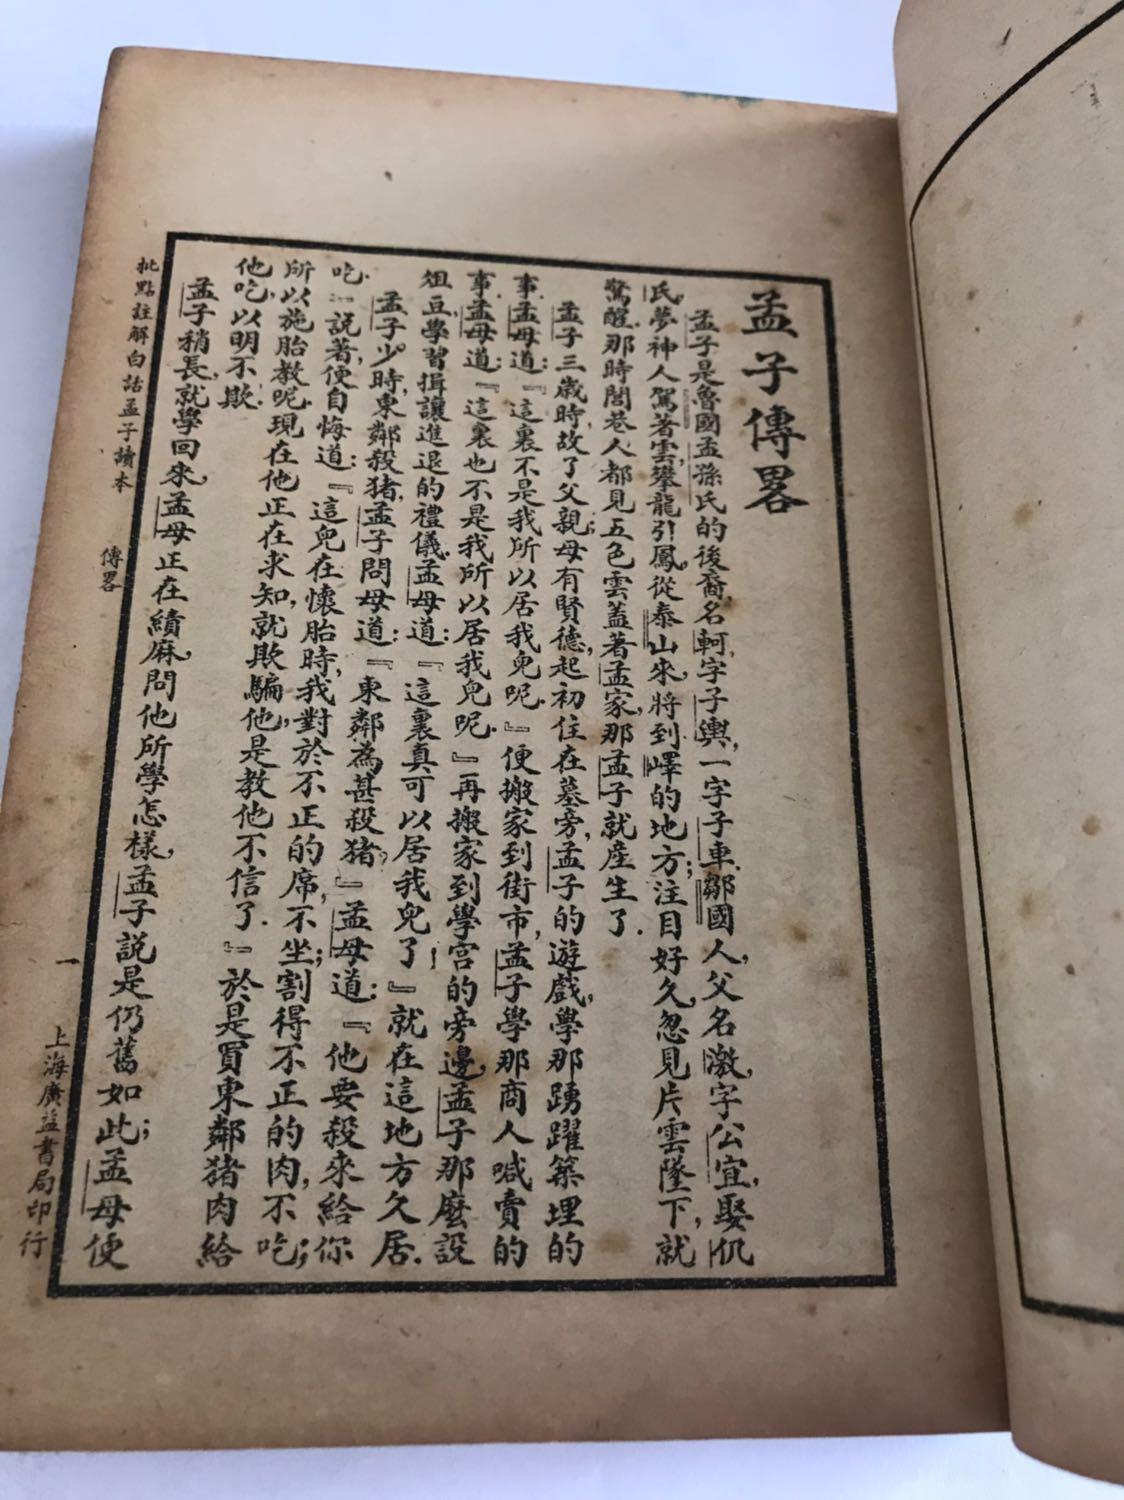 孟子傳畧
孟子是魯國孟孫氏的後裔,名軻,字子輿,一字子車,鄒國人,父名激,字公宜,娶仉
氏,夢神人駕著雲,攀龍引鳳,從泰山來,將到嶧的地方;注目好久,忽見片雲墜下,就
驚醒.那時閭巷人都見五色雲蓋著孟家,那孟子就產生了.
孟子三歲時,故了父親;母有賢德,起初住在墓旁,孟子的遊戲,學那踴躍築埋的
事.孟母道:『這裏不是我所以居我兒呢.』便搬家到街市,孟子學那商人喊賣的
事.孟母道:『這裏也不是我所以居我兒呢.』再搬家到學宮的旁邊,孟子那麼設
俎豆,學習揖讓進退的禮儀.孟母道:『這裏真可以居我兒了!』就在這地方久居.
孟子少時,東鄰殺猪,孟子問母道:『東鄰為甚殺猪,』孟母道:『他要殺來給你
吃.』說著,便自悔道:『這兒在懷胎時,我對於不正的席,不坐;割得不正的肉,不吃;
所以施胎教呢.現在他正在求知,就欺騙他,是教他不信了.』於是買東鄰猪肉給
他吃,以明不欺.
孟子稍長,就學回來,孟母正在績麻,問他所學怎樣,孟子說是仍舊如此;孟母便
批點註解白話孟子讀本 傳畧 一 上海廣益書局印行